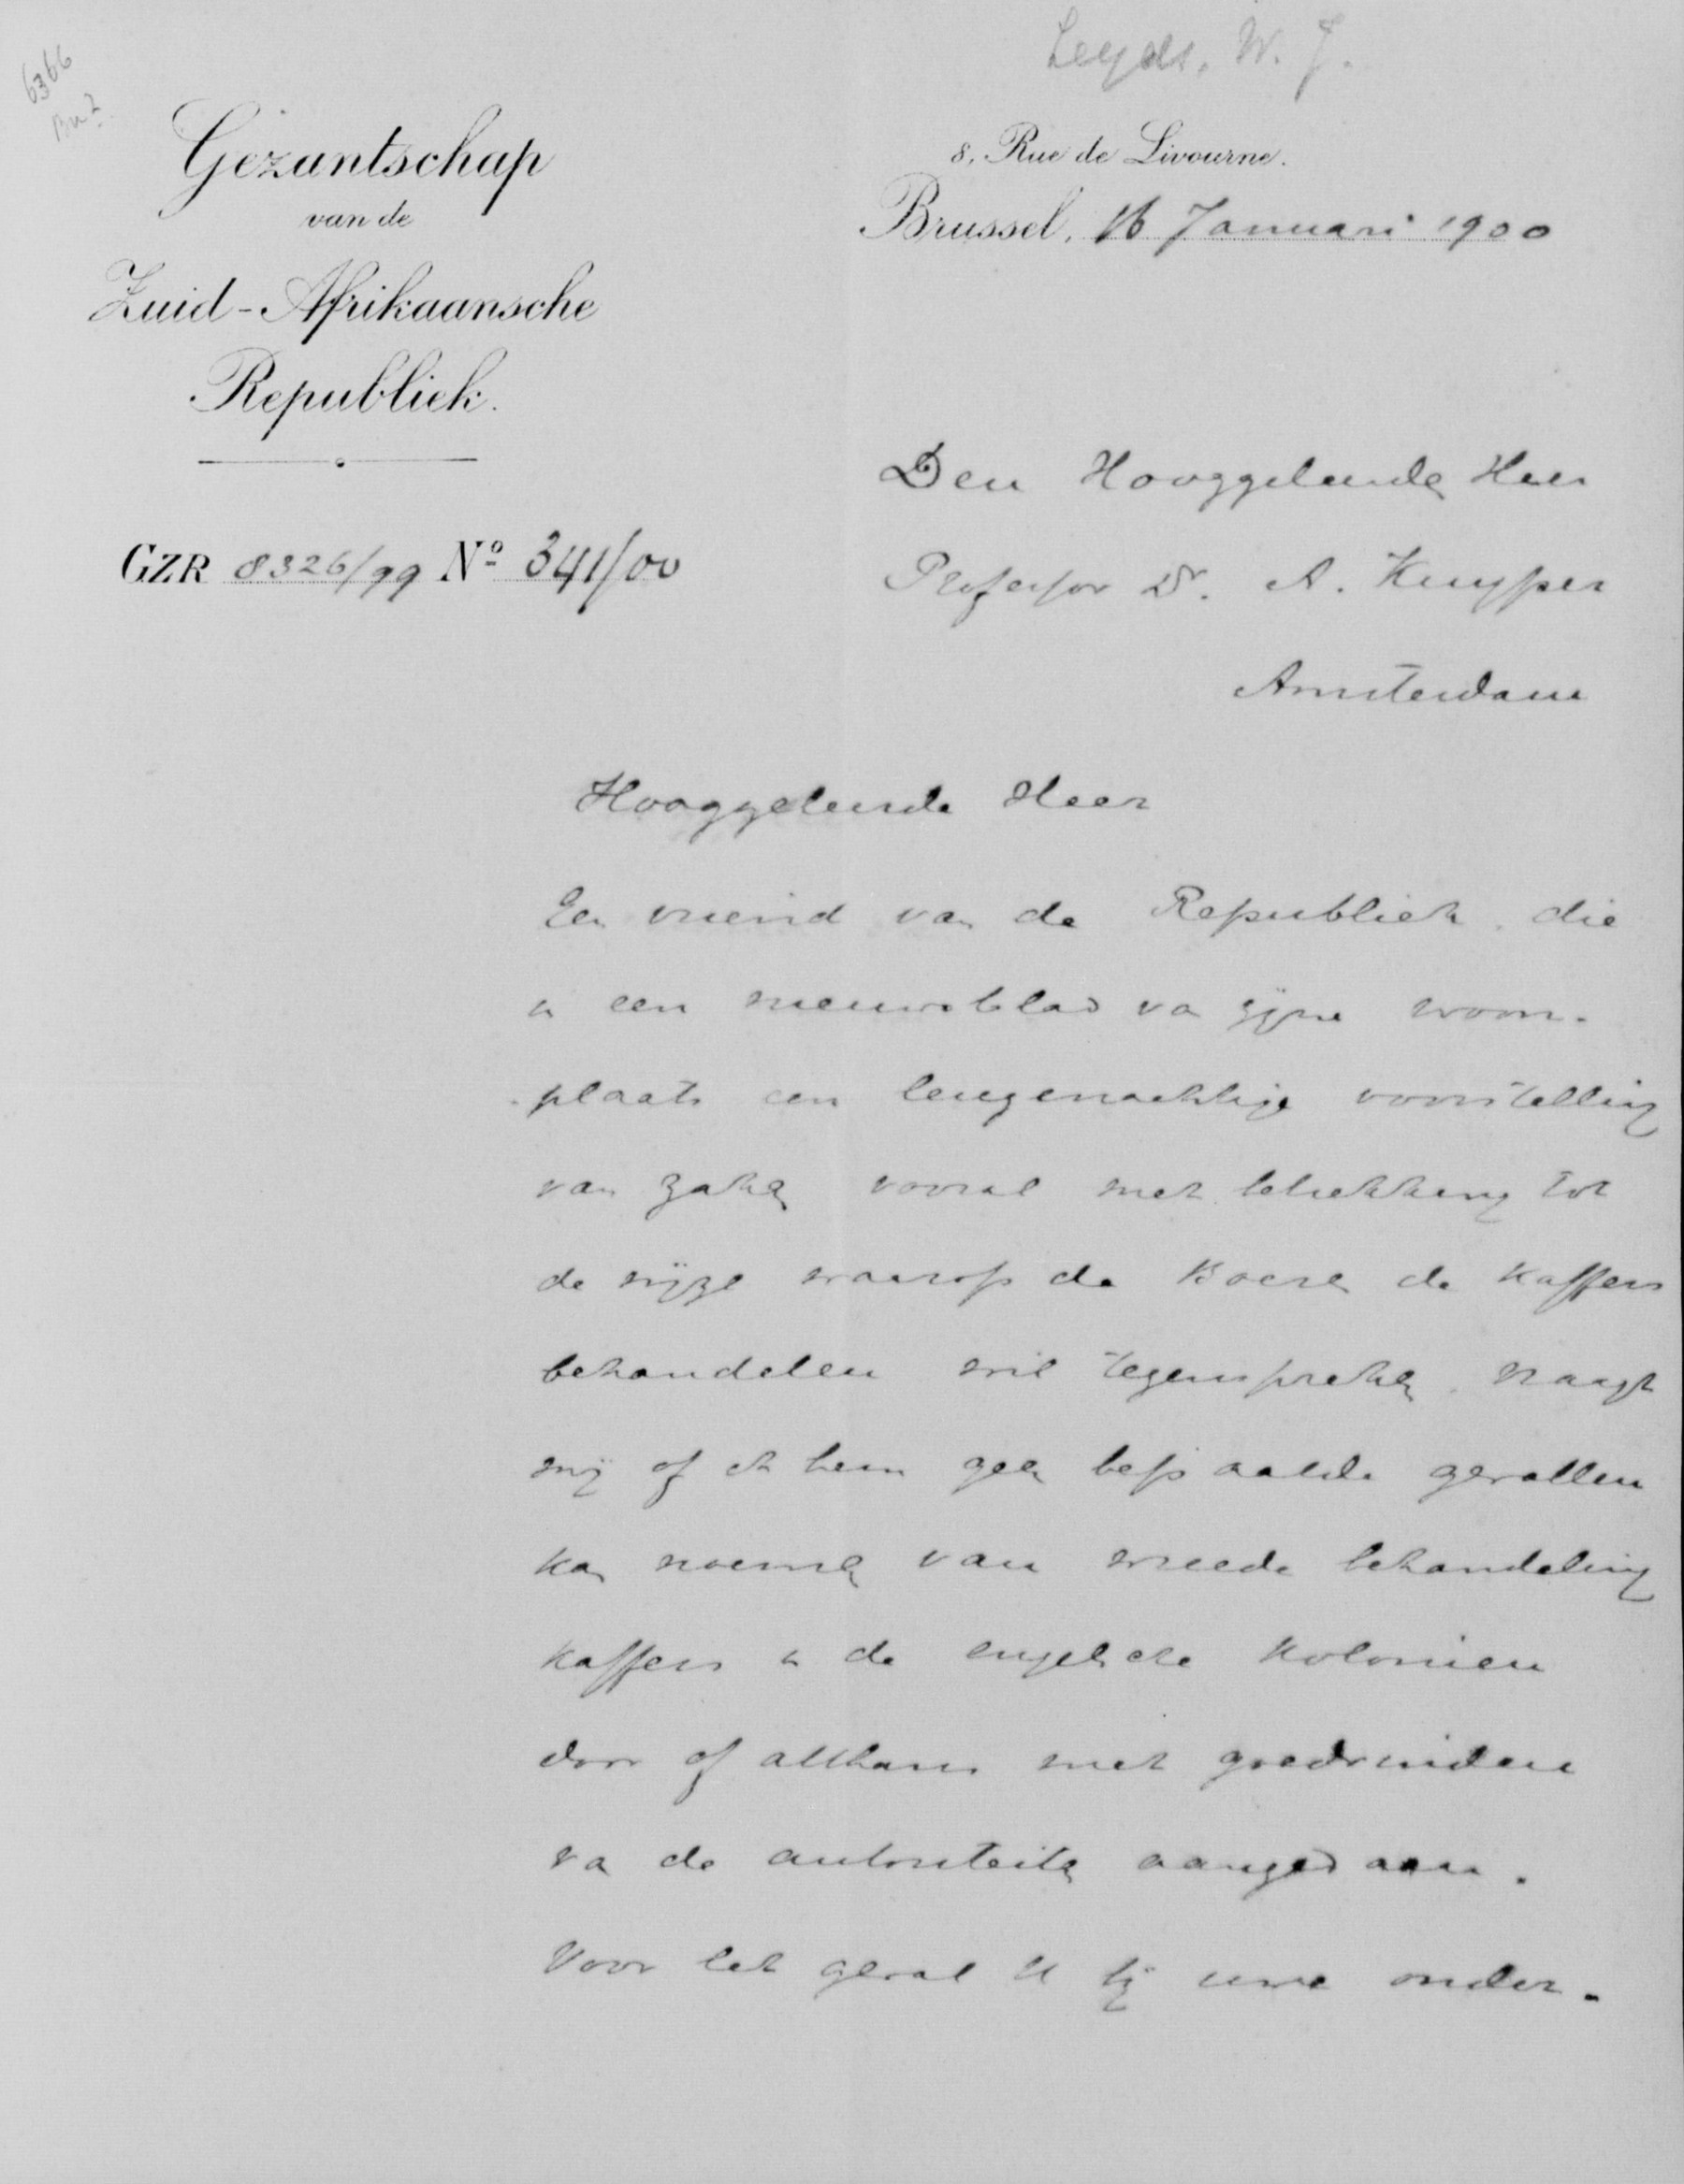 6366
Leyds, W. J.
Gezantschap
van de
Zuid-Afrikaansche
Republiek.
8, Rue de Livourne.
Brussel, 16 Januari 1900
GZR 8326/99 No 341/00
Den Hooggeleerden Heer
Professor Dr. A. Kuyper
Amsterdam
Hooggeleerde Heer
Een vriend van de Republiek, die
in een nieuwsblad van zijne woon-
plaats een leugenachtige voorstelling
van zaken vooral met betrekking tot
de wijze waarop de Boeren de Kaffers
behandelen wil tegenspreken, vraagt
mij of ik hem geen bepaalde gevallen
kan noemen van wreede behandeling
Kaffers in de engelsche Kolonien
door of althans met goedvinden
van de autoriteiten aangedaan.
Voor het geval U bij uwe onder-